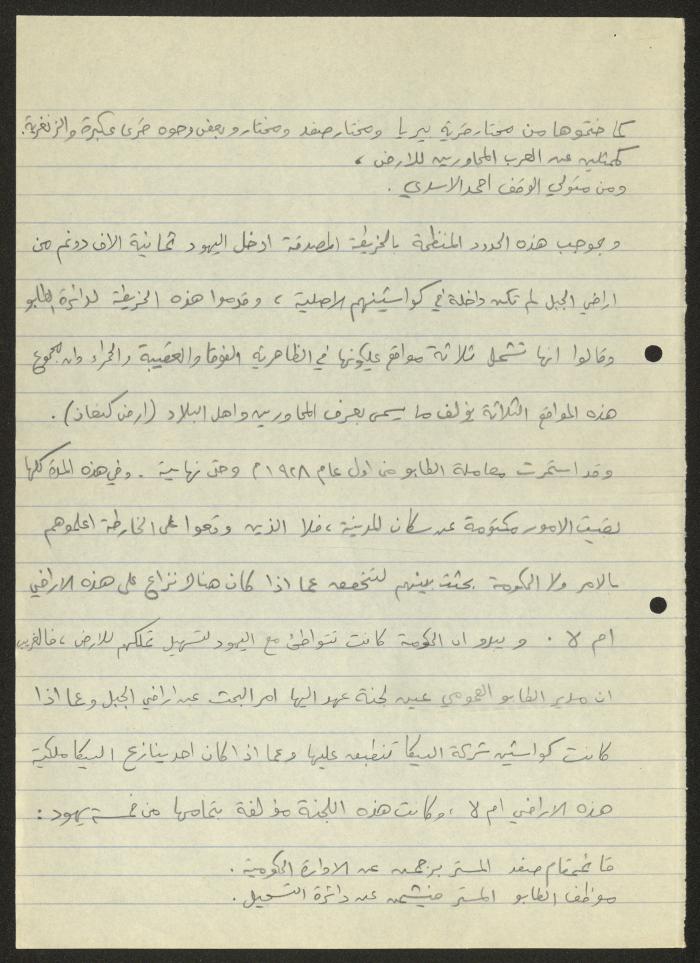 كما ختموها من مختار قرية بيريا ومختار صفد ومختار وبعض وجوه قرى عكبرة والزنغرية.
كممثلين عن العرب المجاورين للارض ،
ومن متولي الوقف احمد الاسدي .
وبموجب هذه الحدود المنظمة بالخريطة المصدقة ادخل اليهود ثمانية الاف دونم من
اراضي الجبل لم تكن داخلة في كواشينهم الاصلية ، وقدموا هذه الخريطة لدائرة الطابو
وقالوا انها تشمل ثلاثة مواقع يملكونها في الظاهرية الفوقا والعقيبة والحمراء وان مجموع
هذه المواقع الثلاثة يؤلف ما يسمى بعرف المجاورين واهل البلاد (ارض كنعان) .
وقد استمرت معاملة الطابو من اول عام ١٩٢٨م وحتى نهايته . وفي هذه المدة كلها
بقيت الامور مكتومة عن سكان المدينة ، فلا الذين وقعوا على الخارطة اعلموهم
بالامر ولا الحكومة بحثت بينهم لتتحقق عما اذا كان هناك نزاع على هذه الاراضي
ام لا . ويبدو ان الحكومة كانت تتواطئ مع اليهود لتسهيل تملكهم للارض ، فالغريب
ان مدير الطابو العمومي عين لجنة عهد اليها امر البحث عن اراضي الجبل وعما اذا
كانت كواشين شركة البيكا تنطبق عليها وعما اذا كان احد ينازع البيكا ملكية
هذه الاراضي ام لا ، وكانت هذه اللجنة مؤلفة بتمامها من خمسة يهود :
قائمقام صفد المستر برجمن عن الادارة الحكومية .
موظف الطابو المستر عن دائرة التسجيل .